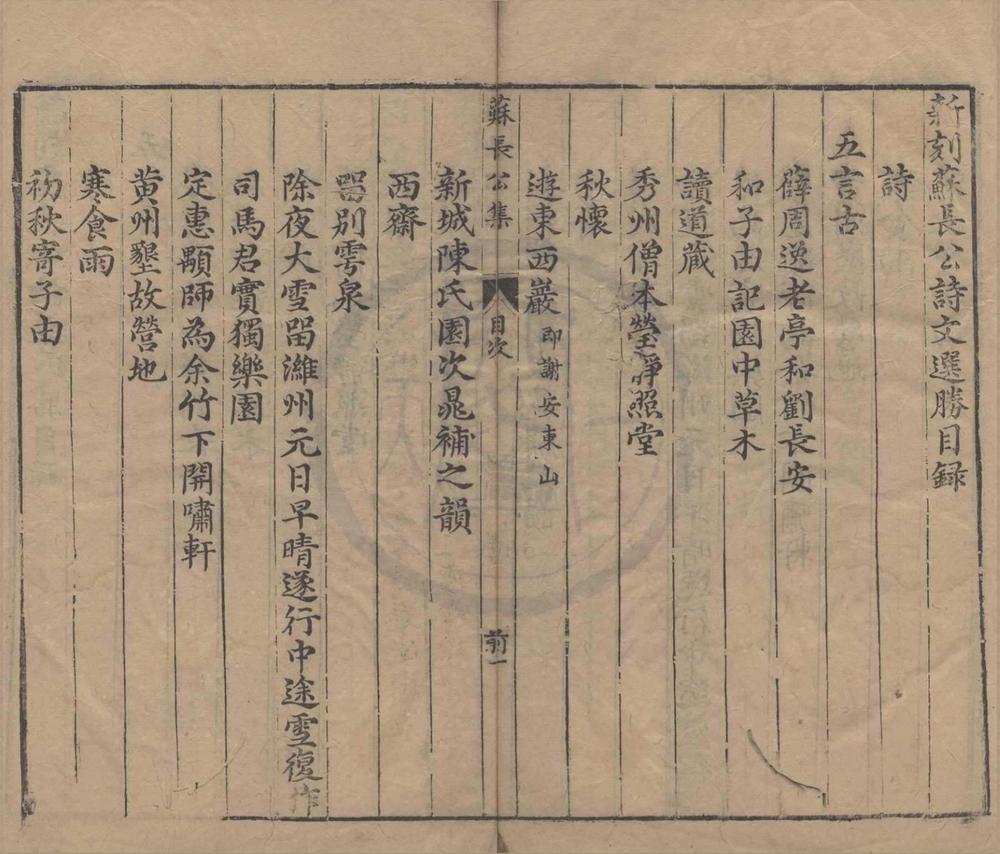 新刻蘇長公詩文選勝目録
詩
五言古
薛周逸老亭和劉長安
和子由記園中草木
讀道藏
秀州僧本瑩靜照堂
秋懷
遊東西巖 即謝安東山
蘇長公集 目次 前一
新城陳氏園次晁補之韻
西齋
畱別雩泉
除夜大雪畱濰州元日早晴遂行中途雪復作
司馬君實獨樂園
定惠顒師為余竹下開嘯軒
黄州墾故營地
寒食雨
初秋寄子由